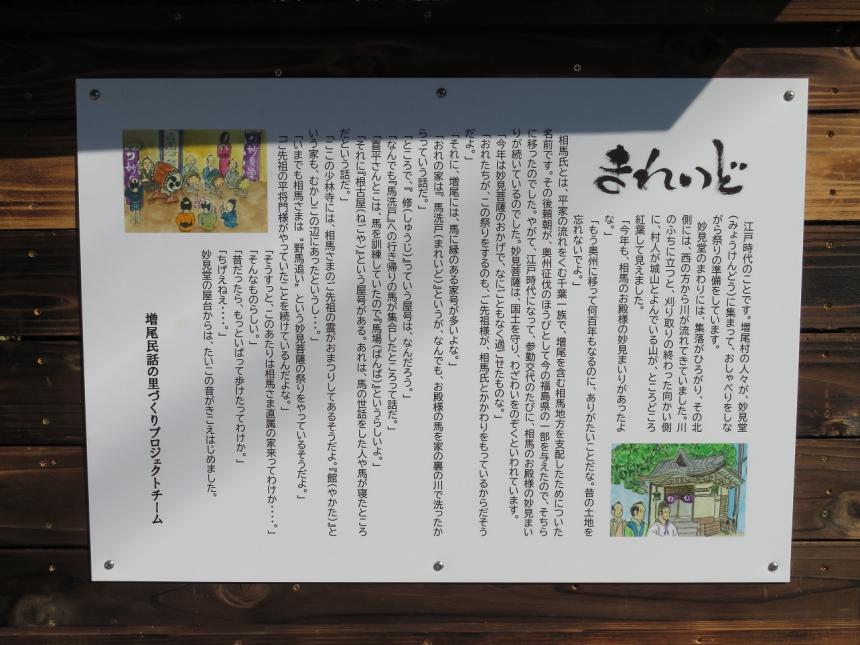 まれいど
江戸時代のことです。増尾村の人々が、妙見堂
（みょうけんどう）に集まって、おしゃべりをしな
がら祭りの準備をしています。
妙見堂のまわりには、集落がひろがり、その北
側には、西の方から川が流れてきていました。川
のふちに立つと、刈り取りの終わった向かい側
に、村人が城山とよんでいる山が、ところどころ
紅葉して見えました。
「今年も、相馬のお殿様の妙見まいりがあったよ
な。」
「もう奥州に移って何百年もなるのに、ありがたいことだな。昔の土地を
忘れないでよ。」
相馬氏とは、平家の流れをくむ千葉一族で、増尾を含む相馬地方を支配したためについた
名前です。その後頼朝が、奥州征伐のほうびとして今の福島県の一部を与えたので、そちら
に移ったのでした。やがて、江戸時代になって、参勤交代のたびに、相馬のお殿様の妙見まい
りが続いているのでした。妙見菩薩は、国土を守り、わざわいをのぞくといわれています。
「今年は妙見菩薩のおかげで、なにごともなく過ごせたものな。」
「おれたちが、この祭りをするのも、ご先祖様が、相馬氏とかかわりをもっているからだそう
だよ。」
「それに、増尾には、馬に縁のある家号が多いよな。」
「おれの家は『馬洗戸（まれいど）』というが、なんでも、お殿様の馬を家の裏の川で洗ったか
らっていう話だ。」
「ところで、『修（しゅうじ）』っていう屋号は、なんだろう。」
「なんでも『馬洗戸』への行き帰りの馬が集合したところって話だ。」
「喜平さんとこは、馬を訓練していたので『馬場（ばんば）』というらしいよ。」
「それに『根古屋（ねごや）』という屋号がある。あれは、馬の世話をした人や馬が寝たところ
だという話だ。」
「ここの少林寺には、相馬さまのご先祖の霊がおまつりしてあるそうだよ。『館（やかた）』と
いう家も、むかしこの辺にあったというし・・・。」
「いまでも相馬さまは〝野馬追い〟という妙見菩薩の祭りをやっているそうだよ。」
「ご先祖の平将門様がやっていたことを続けているんだよな。」
「そうすっと、このあたりは相馬さま直属の家来ってわけか・・・・。」
「そんなものらしい。」
「昔だったら、もっといばって歩けたってわけか。」
「ちげえねえ・・・・。」
妙見堂の屋台からは、たいこの音がきこえはじめました。
増尾民話の里づくりプロジェクトチーム
妙見堂